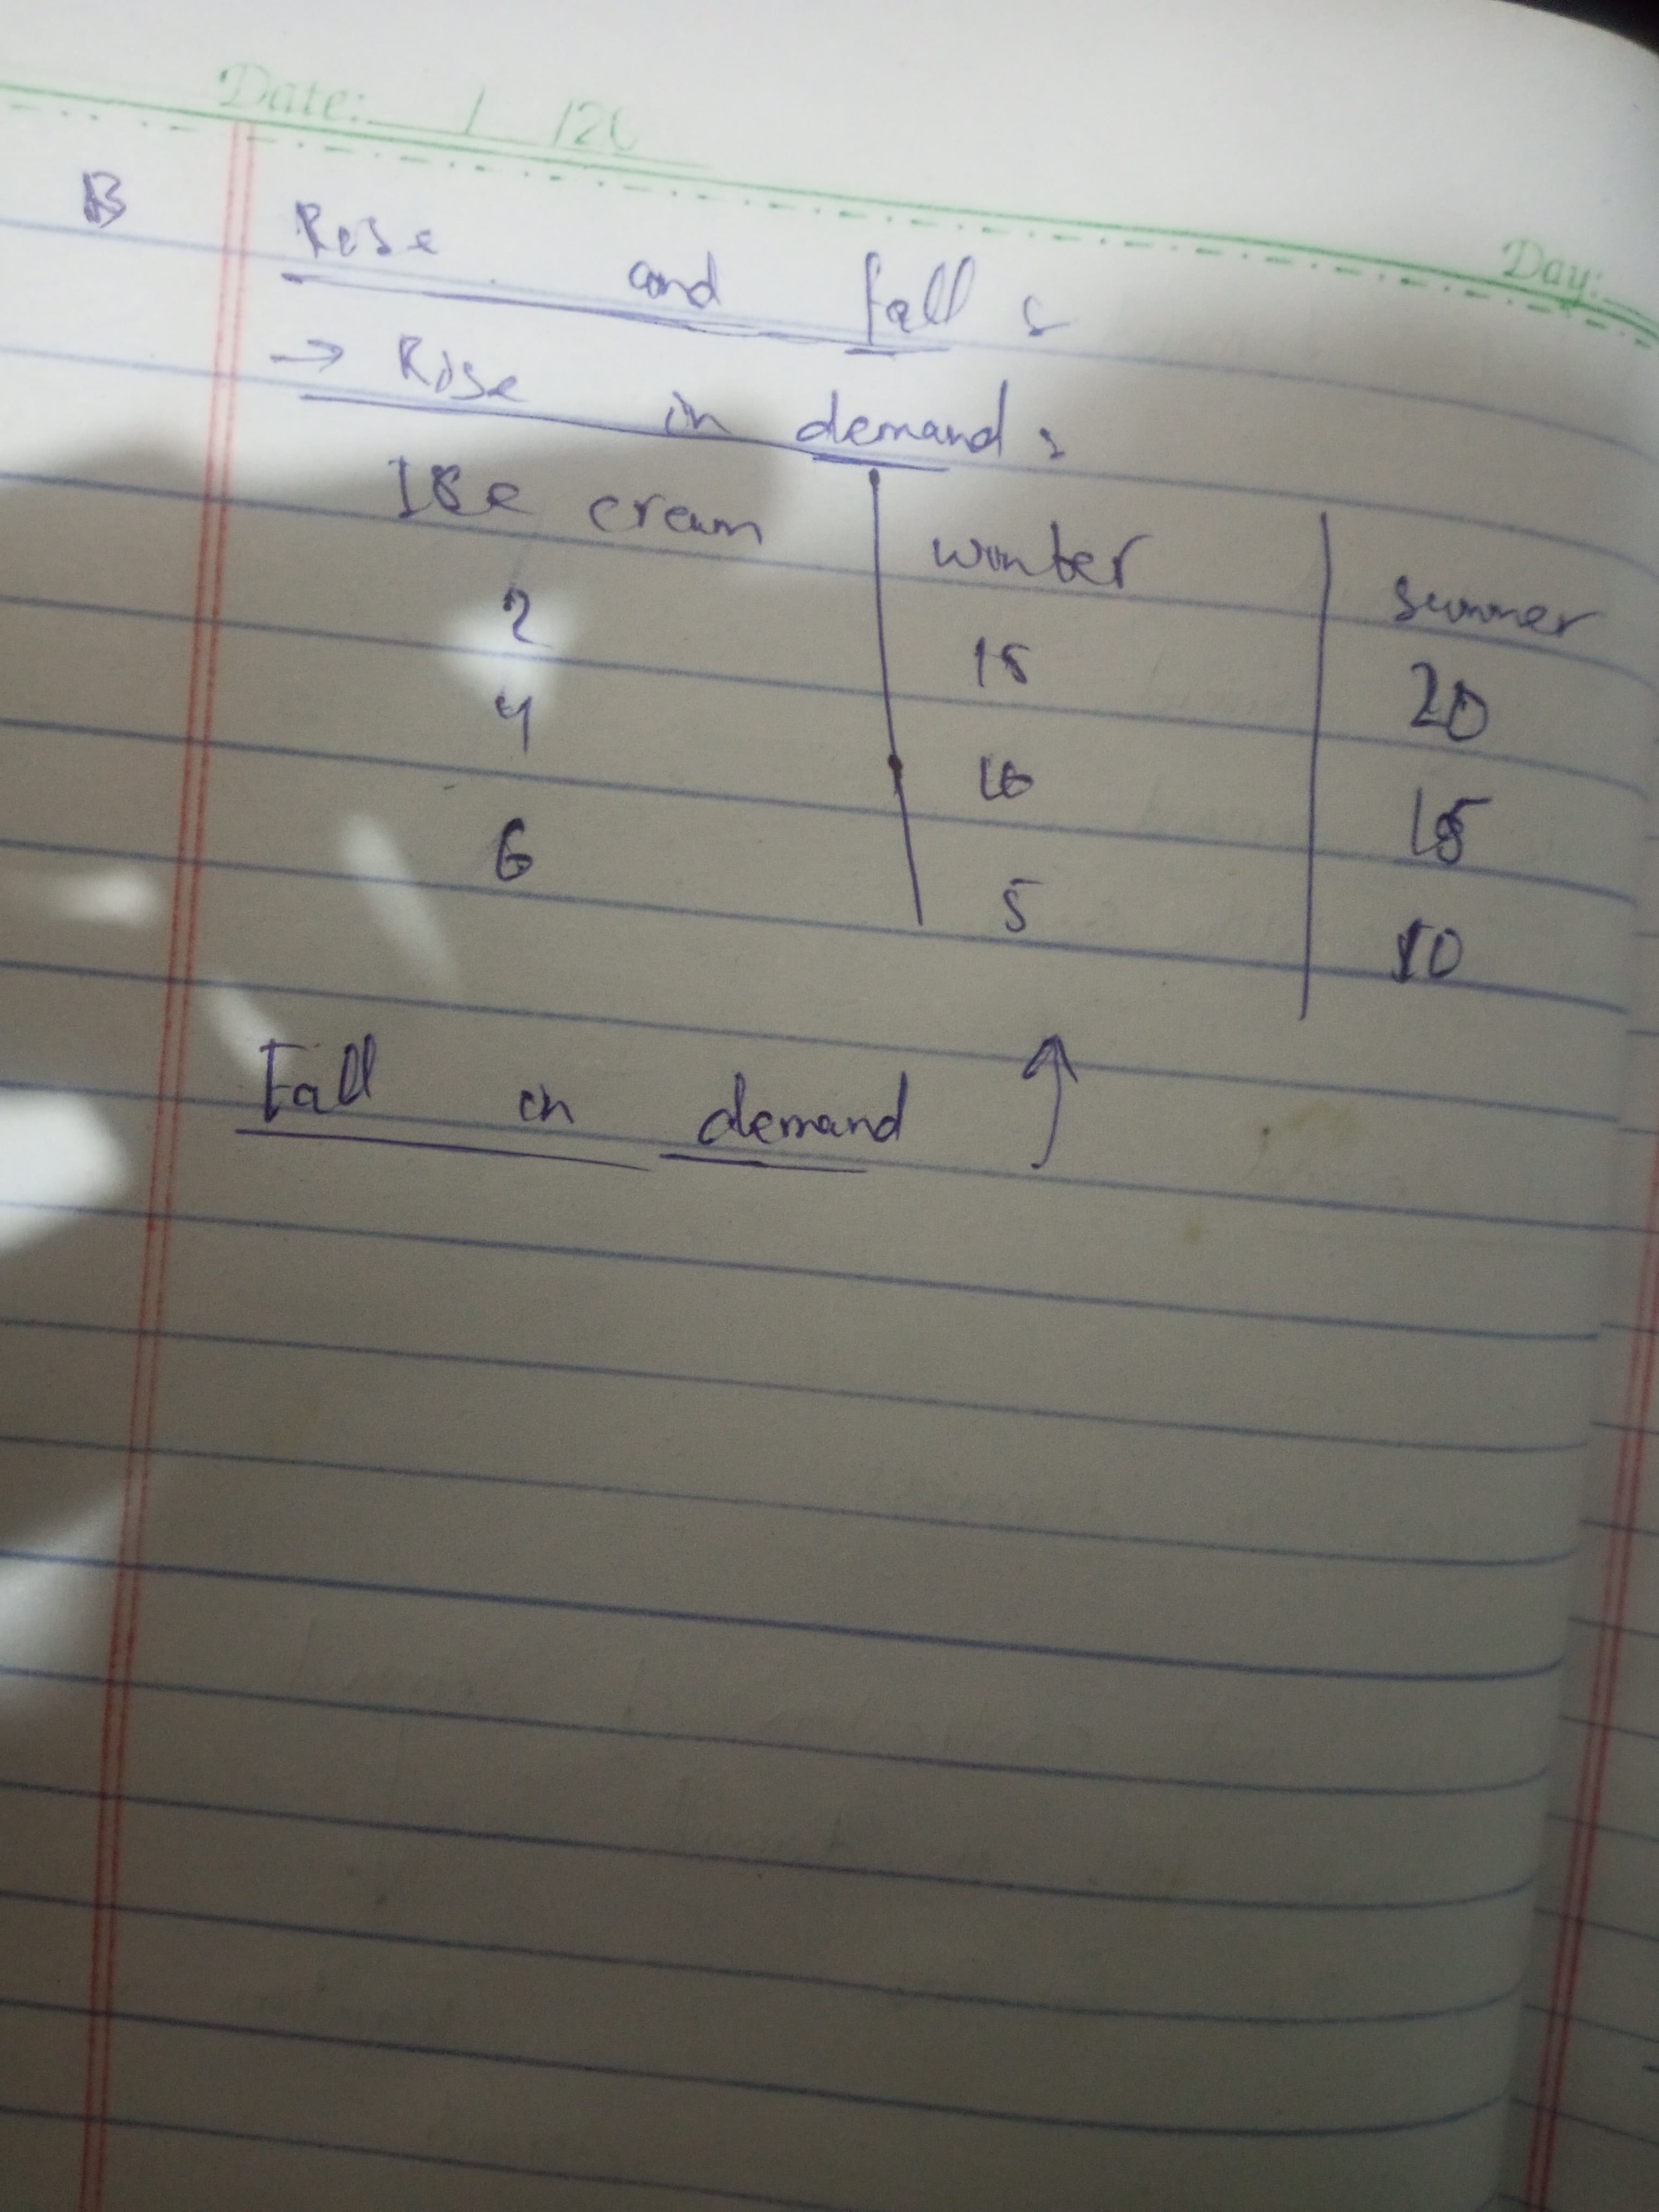 Date: / /20
Day:
B Rise and fall :
→ Rise in demand :
Ice cream winter summer
2 15 20
4 10 15
6 5 10
Fall in demand ↑